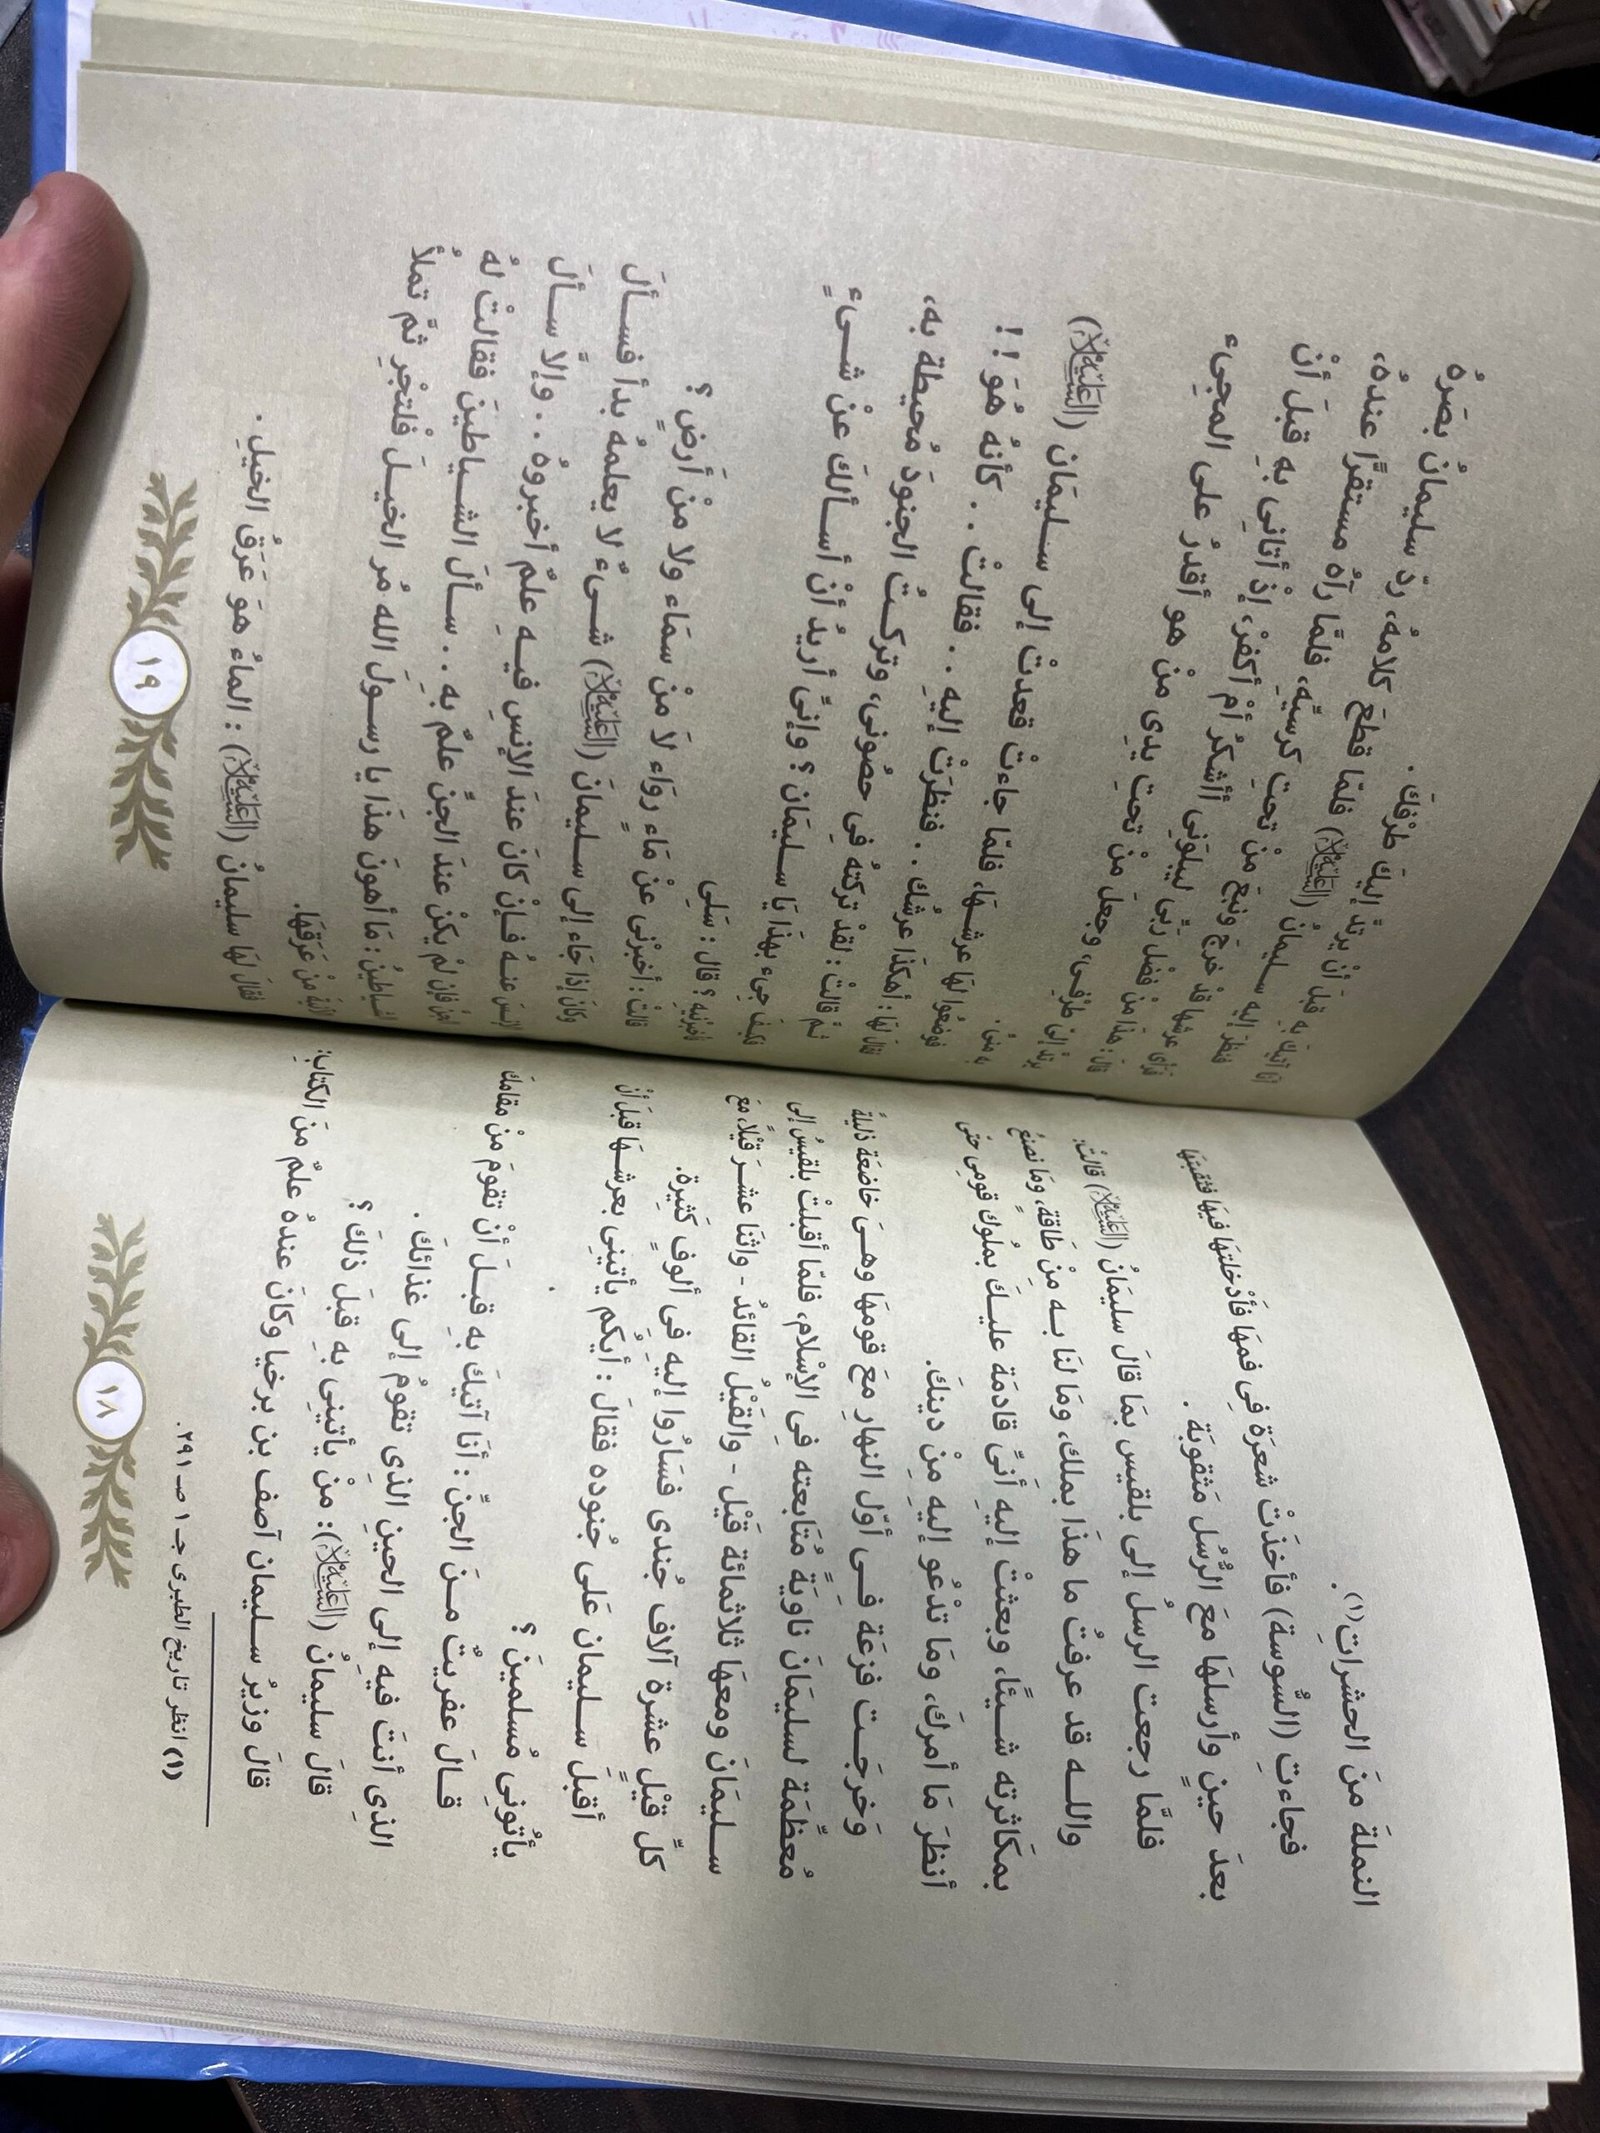 النملةَ منَ الحشراتِ(١).
فجاءتِ (السُّوسة) فأخذَتْ شعرَة فِى فمهَا فأدْخلتهَا فيهَا فثقبتهَا
بعدَ حينٍ وأرسلهَا معَ الرُّسُل مَثقوبَة .
فلمَّا رجعت الرسلُ إلى بلقيس بمَا قالَ سليمَانُ (عليه السلام) قالتْ:
واللـه قد عرفتُ ما هذَا بملك، ومَا لنَا بـه مِنْ طَاقةٍ، ومَا نصنعُ
بمكَاثرته شـيئًا، وبعثتْ إليهِ أَنىِّ قادمَة عليـكَ بمُلوك قومِى حتى
أنظرَ مَا أمركَ، ومَا تدْعُو إليهِ مِنْ دينكَ.
وَخرجَـت فزعَة فـى أوّل النهارِ معَ قومهَا وهـىَ خاضعَة ذليلةً
مُعظِّمَة لسليمَانَ ناويَةٍ مُتَابعته فِى الإسْلام، فلمّا أقبلتْ بلقيسُ إلى
سـليمَانَ ومعهَا ثلاثمائة قَيْل - والقَيْلُ القائدُ - واثنَا عشـرَ قيْلاً، معَ
كلِّ قيْلٍ عشرة آلاف جُندى فسَارُوا إليهِ فِى ألوفٍ كَثيرة.
أقبلَ سـليمان عَلى جُنوده فقالَ : أيكم يأتينِى بعرشـهَا قبلَ أنْ
يأتُونِى مُسلمينَ ؟
قـالَ عفريتٌ مـنَ الجنِّ : أنَا آتيكَ بِهِ قبـلَ أنْ تقومَ منْ مقامكَ
الذِى أنتَ فيهِ إلى الحينِ الذِى تقومُ إلى غذائكَ .
قالَ سليمانُ (عليه السلام): منْ يأتينِى بهِ قبلَ ذلكَ ؟
قالَ وزيرُ سـليمان آصف بن برخيا وكانَ عندهُ علمٌ منَ الكتابِ:
(١) انظر تاريخ الطبرى جـ ١ صـ ٢٩١.
١٨
أنَا آتيكَ بهِ قبلَ أنْ يرتدَّ إليكَ طرْفكَ . فلمّا قطعَ كلامهُ، ردّ سليمانُ بصَرهُ
فنظرَ إليه سـليمانُ (عليه السلام) فلمّا رآهُ مستقرًّا عندهُ،
فرَأى عرشهَا قدْ خرجَ ونبَعَ منْ تحتِ كرسيِّه،
قالَ : هذَا منْ فضْل ربِّى ليبلوَنى أأشكرُ أمْ أكفرْ، إذْ أتانِى بهِ قبلَ أنْ
يرتدّ إلىّ طرْفِى، وجعلَ منْ تحتِ يدِى منْ هو أقدرُ على المجىء
بهِ منىِّ.
فوضعُوا لهَا عرشـهَا، فلمّا جاءتْ قعدتْ إلى سـليمَان (عليه السلام)
فقالَ لهَا : أهكذَا عرشُك . . فنظرَتْ إليهِ . . فقالتْ . . كأنهُ هُوَ ! !
ثمَّ قالتْ : لقدْ تركتهُ فِى حصُونى، وتركـتُ الجنودَ مُحيطة به،
فكيفَ جِىء بهذَا يَا سـليمَان ؟ وإنىِّ أريدُ أنْ أسـألكَ عنْ شـىءٍ
فأخبرْنيهِ ؟ قالَ : سَلِى
قالتْ : أخبِرْنِى عنْ مَاء روَاء لاَ منْ سمَاء ولا منْ أرَضٍ ؟
وكانَ إذَا جَاء إلى سـليمانَ (عليه السلام) شـىءٌ لا يعلمهُ بدأ فسـألَ
الإنسَ عنـهُ فـإنْ كانَ عندَ الإنسِ فيـهِ علمٌ أخبروهُ . . وإلاَّ سـألَ
الجنّ فإن لمْ يكنْ عندَ الجنِّ علمٌ بهِ . . سـألَ الشـياطينَ فقالتْ لهُ
الشياطينُ : مَا أهونَ هذَا يا رسـولَ الله مُر الخيـلَ فلْتجْرِ ثمَّ تملأُ
الآنيَة منْ عَرَقهَا.
فقالَ لهَا سليمانُ (عليه السلام) : الماءُ هوَ عَرَقُ الخيلِ .
١٩